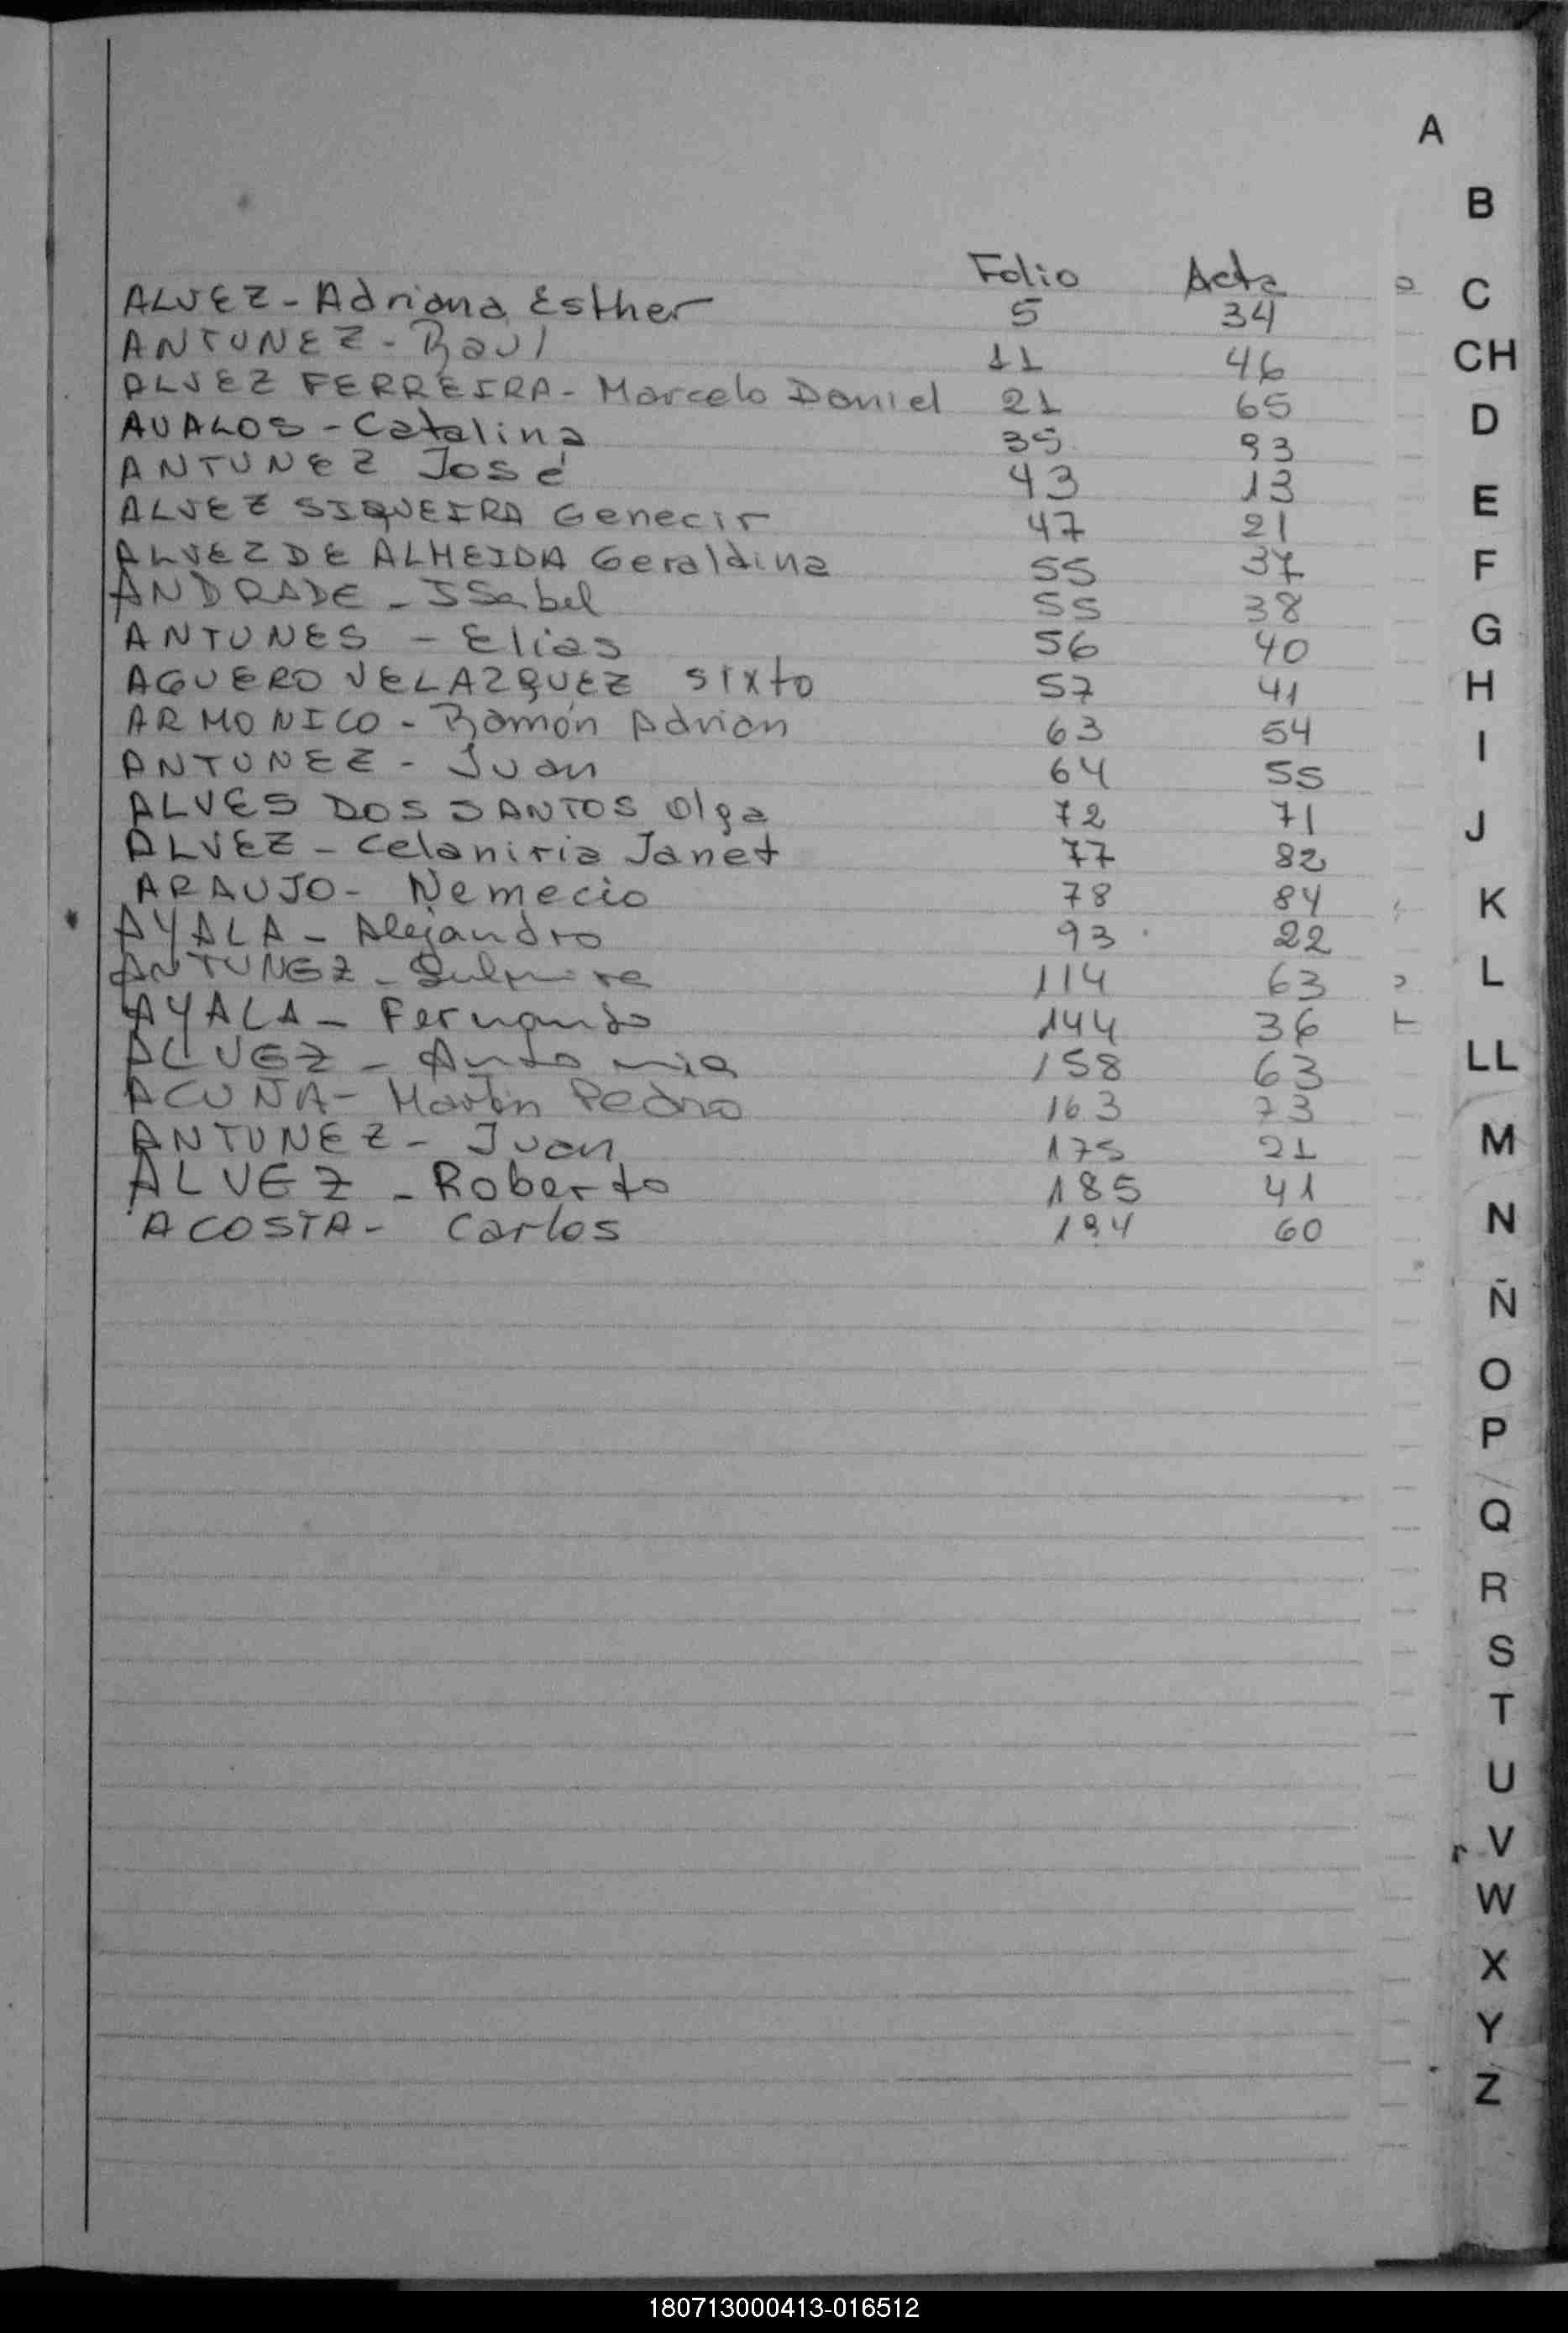 Folio Acta
ALVEZ - Adriana Esther 5 34
ANTUNEZ - Raul 11 46
ALVEZ FERREIRA - Marcelo Daniel 21 65
AVALOS - Catalina 35 93
ANTUNEZ José 43 13
ALVEZ SIQUEIRA Genecir 47 21
ALVEZ DE ALMEIDA Geraldina 55 37
ANDRADE - ISabel 55 38
ANTUNES - Elias 56 40
AGUERO VELAZQUEZ sixto 57 41
ARMONICO - Ramón Adrian 63 54
ANTUNEZ - Juan 64 55
ALVES DOS SANTOS Olga 72 71
ALVEZ - Celaniria Janet 77 82
ARAUJO - Nemecio 78 84
AYALA - Alejandro 93 22
ANTUNEZ - 114 63
AYALA - Fernando 144 36
ALVEZ - Antonia 158 63
ACUÑA - Martín Pedro 163 73
ANTUNEZ - Juan 175 21
ALVEZ - Roberto 185 41
ACOSTA - Carlos 194 60
A
B
C
CH
D
E
F
G
H
I
J
K
L
LL
M
N
Ñ
O
P
Q
R
S
T
U
V
W
X
Y
Z
180713000413-016512